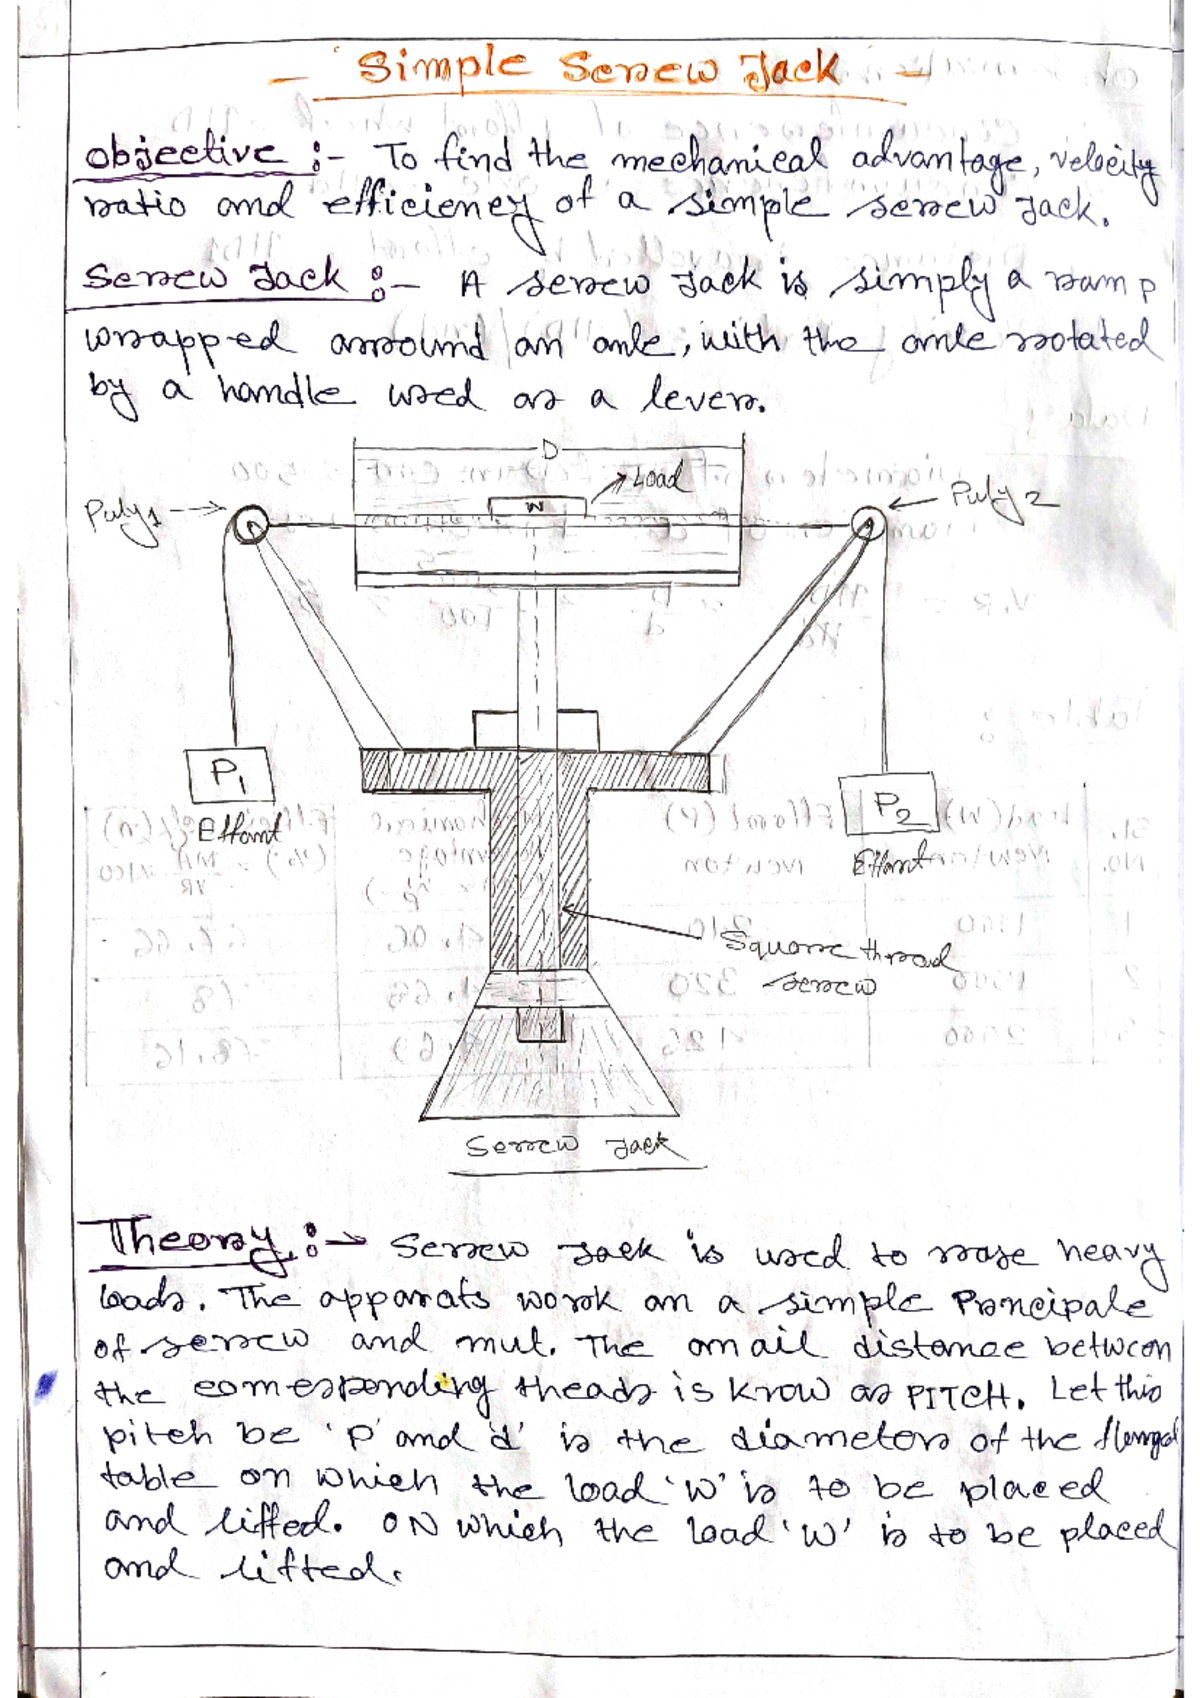 - Simple Screw Jack -
Objective :- To find the mechanical advantage, velocity
ratio and efficiency of a simple screw Jack.
Screw Jack :- A screw Jack is simply a ramp
wrapped arround an axle, with the axle rotated
by a handle used as a lever.
D
Load
W
Puly1
Puly 2
P1
Effort
P2
Effort
Square thread
screw
Screw Jack
Theory :→ Screw Jack is used to rase heavy
loads. The apparats work on a simple Principale
of screw and nut. The distance between
the corresponding theads is know as PITCH. Let this
pitch be 'p' and 'd' is the diameter of the
table on which the load 'W' is to be placed
and lifted. ON which the load 'W' is to be placed
and lifted.